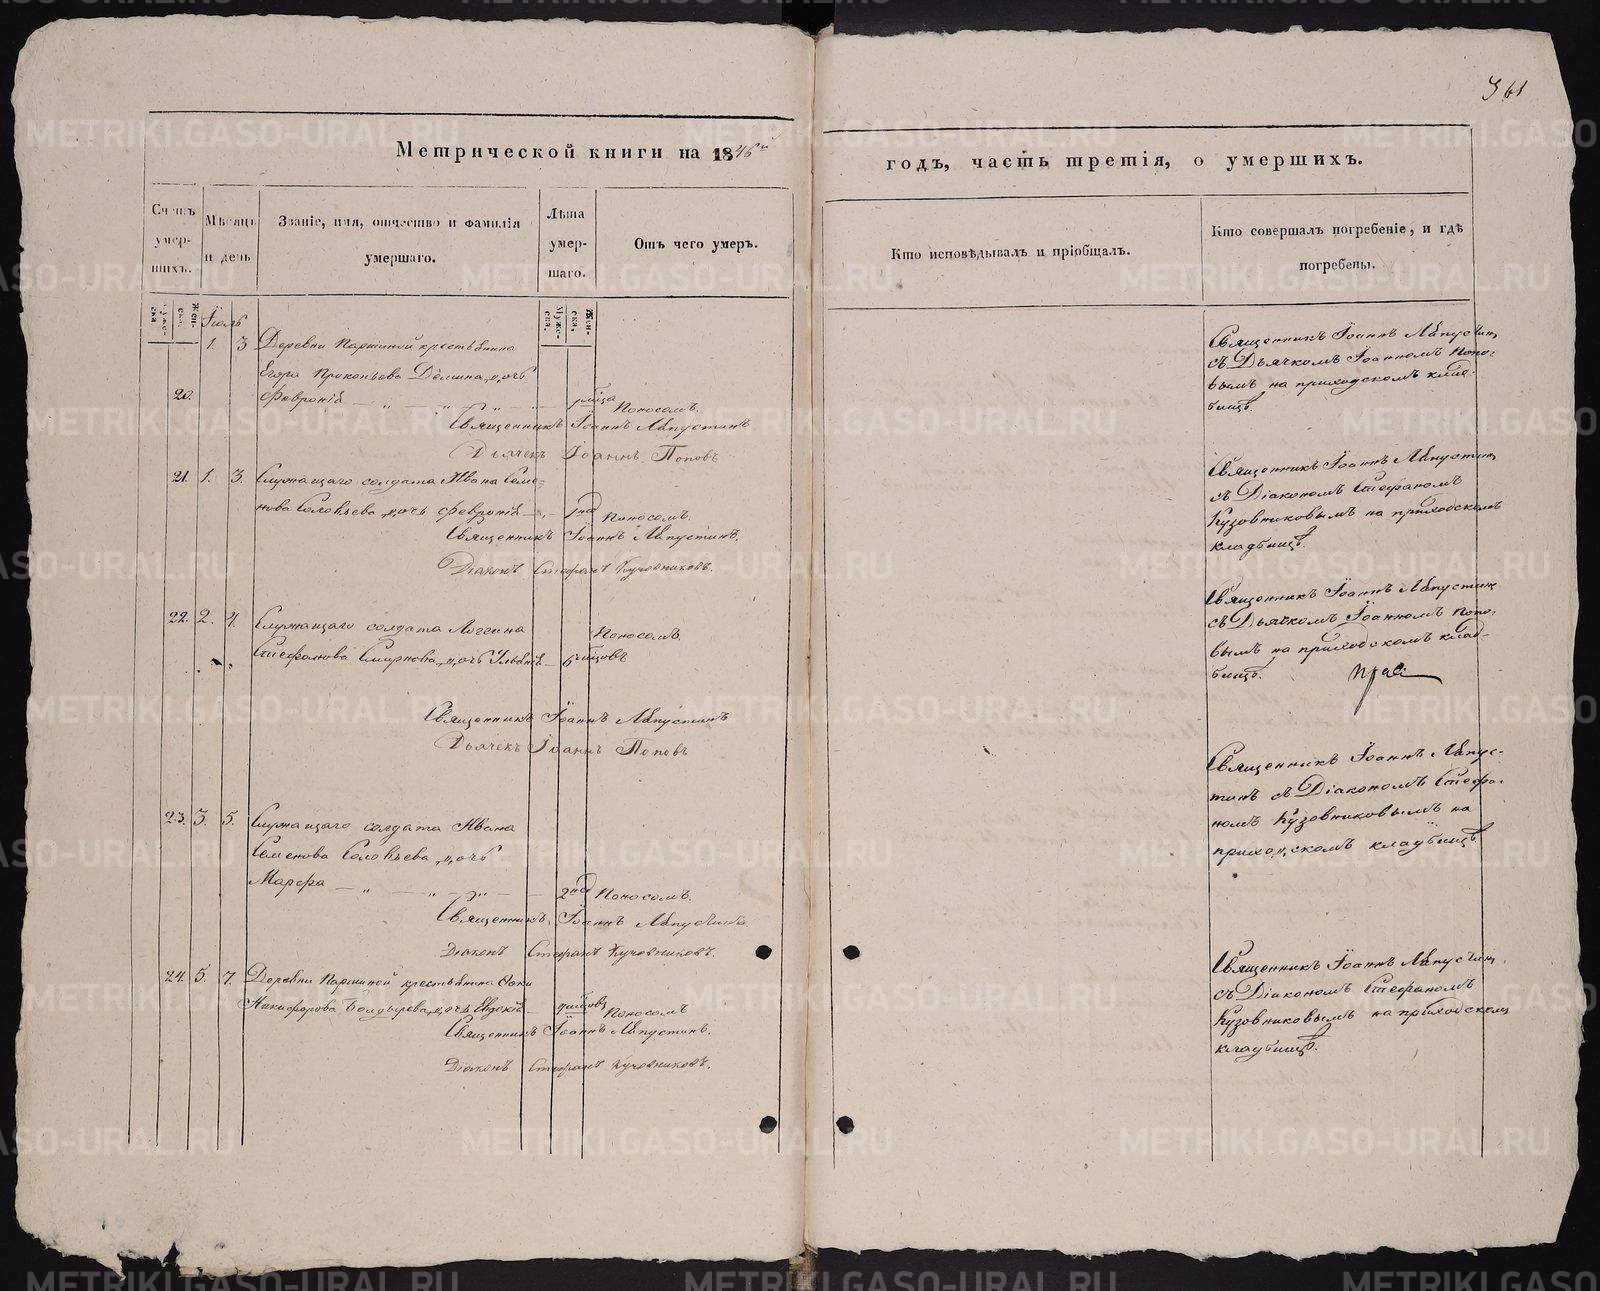 361
Метрической книги на 1846й
годъ, часть третія, о умершихъ.
Счетъ умер-шихъ.
Мѣсяцъ и день
Званіе, имя, отчество и фамилія умершаго.
Лѣта умер-шаго.
Отъ чего умеръ.
Кто исповѣдывалъ и пріобщалъ.
Кто совершалъ погребеніе, и гдѣ погребены.
Муже-ска.
Жен-ска.
Муже-ска.
Жен-ска.
Іюль
1. 3 Деревни Паршиной крестьянина
Егора Прокопьева Демина дочь
20. Февронія 1 мца Поносомъ.
Священникъ Іоаннъ Ляпустинъ
Дьячекъ Іоаннъ Поповъ
Священникъ Іоаннъ Ляпустинъ
съ Дьячкомъ Іоанномъ Попо-
вымъ на приходскомъ клад-
бищѣ.
21. 1. 3. Служащаго солдата Ивана Семе-
нова Соловьева дочь Февронія Поносомъ.
Священникъ Іоаннъ Ляпустинъ.
Діаконъ Стефанъ Кузовниковъ.
Священникъ Іоаннъ Ляпустинъ
съ Діакономъ Стефаномъ
Кузовниковымъ на приходскомъ
кладбищѣ.
22. 2. 4. Служащаго солдата Логгина Поносомъ.
Стефанова Смирнова дочь 6 мцовъ
Священникъ Іоаннъ Ляпустинъ
Дьячекъ Іоаннъ Поповъ
Священникъ Іоаннъ Ляпустинъ
съ Дьячкомъ Іоанномъ Попо-
вымъ на приходскомъ клад-
бищѣ.
23. 3. 5. Служащаго солдата Ивана
Семенова Соловьева дочь
Марфа 2 нед Поносомъ.
Священникъ Іоаннъ Ляпустинъ.
Діаконъ Стефанъ Кузовниковъ.
Священникъ Іоаннъ Ляпус-
тинъ съ Діакономъ Стефа-
номъ Кузовниковымъ на
приходскомъ кладбищѣ.
24. 5. 7. Деревни Паршиной крестьянина Фоки
Никифорова Болдырева дочь Евдокія Поносомъ
Священникъ Іоаннъ Ляпустинъ.
Діаконъ Стефанъ Кузовниковъ.
Священникъ Іоаннъ Ляпустинъ
съ Діакономъ Стефаномъ
Кузовниковымъ на приходскомъ
кладбищѣ.
METRIKI.GASO-URAL.RU